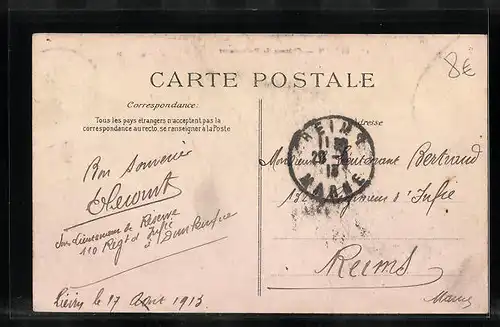 8€
CARTE POSTALE
Correspondance:
Tous les pays étrangers n'acceptent pas la
correspondance au recto, se renseigner à la Poste
Adresse
REIMS
MARNE
Bon Souvenir
Sous Lieutenant de Réserve
110 Régt d'Infie
à Dunkerque
le 17 Août 1913
Monsieur Lieutenant Bertrand
Régiment d'Infie
Reims
Marne